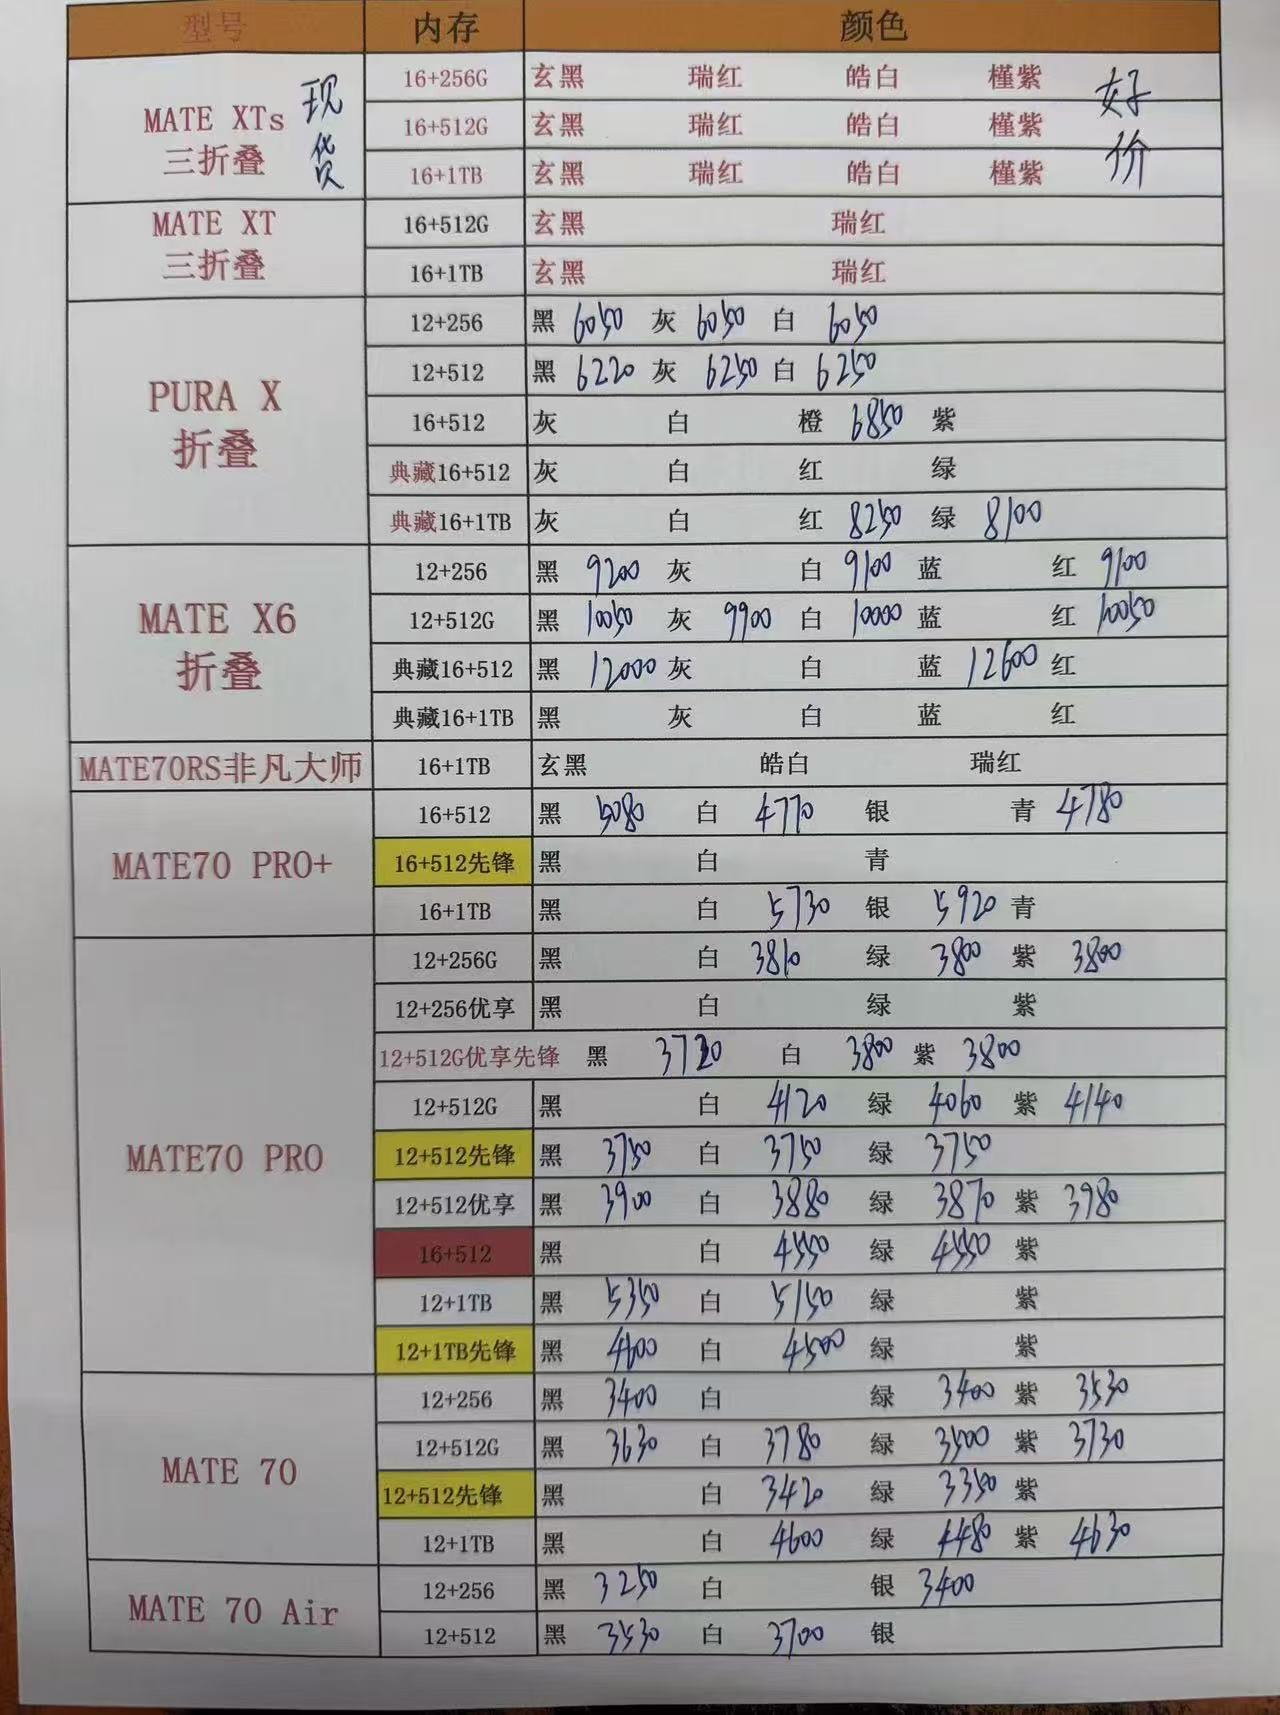 型号 内存 颜色
MATE XTs 三折叠 现货 16+256G 玄黑 瑞红 皓白 槿紫 好价
16+512G 玄黑 瑞红 皓白 槿紫
16+1TB 玄黑 瑞红 皓白 槿紫
MATE XT 三折叠 16+512G 玄黑 瑞红
16+1TB 玄黑 瑞红
PURA X 折叠 12+256 黑 6050 灰 6050 白 6050
12+512 黑 6220 灰 6250 白 6250
16+512 灰 白 橙 6850 紫
典藏16+512 灰 白 红 绿
典藏16+1TB 灰 白 红 8250 绿 8100
MATE X6 折叠 12+256 黑 9200 灰 白 9100 蓝 红 9100
12+512G 黑 10050 灰 9900 白 10000 蓝 红 10050
典藏16+512 黑 12000 灰 白 蓝 12600 红
典藏16+1TB 黑 灰 白 蓝 红
MATE70RS非凡大师 16+1TB 玄黑 皓白 瑞红
MATE70 PRO+ 16+512 黑 5080 白 4770 银 青 4780
16+512先锋 黑 白 青
16+1TB 黑 白 5730 银 5920 青
MATE70 PRO 12+256G 黑 白 3810 绿 3800 紫 3800
12+256优享 黑 白 绿 紫
12+512G优享先锋 黑 3720 白 3800 紫 3800
12+512G 黑 白 4120 绿 4060 紫 4140
12+512先锋 黑 3750 白 3750 绿 3750
12+512优享 黑 3900 白 3880 绿 3870 紫 3980
16+512 黑 白 4550 绿 4550 紫
12+1TB 黑 5350 白 5150 绿 紫
12+1TB先锋 黑 4600 白 4500 绿 紫
MATE 70 12+256 黑 3400 白 绿 3400 紫 3530
12+512G 黑 3630 白 3780 绿 3500 紫 3730
12+512先锋 黑 白 3420 绿 3350 紫
12+1TB 黑 白 4600 绿 4480 紫 4630
MATE 70 Air 12+256 黑 3250 白 银 3400
12+512 黑 3530 白 3700 银